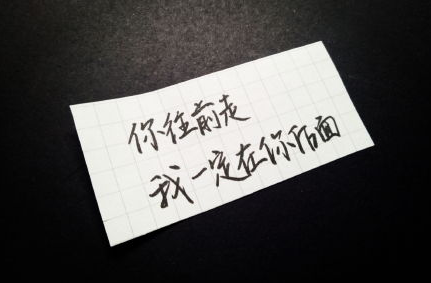 你往前走
我一定在你后面